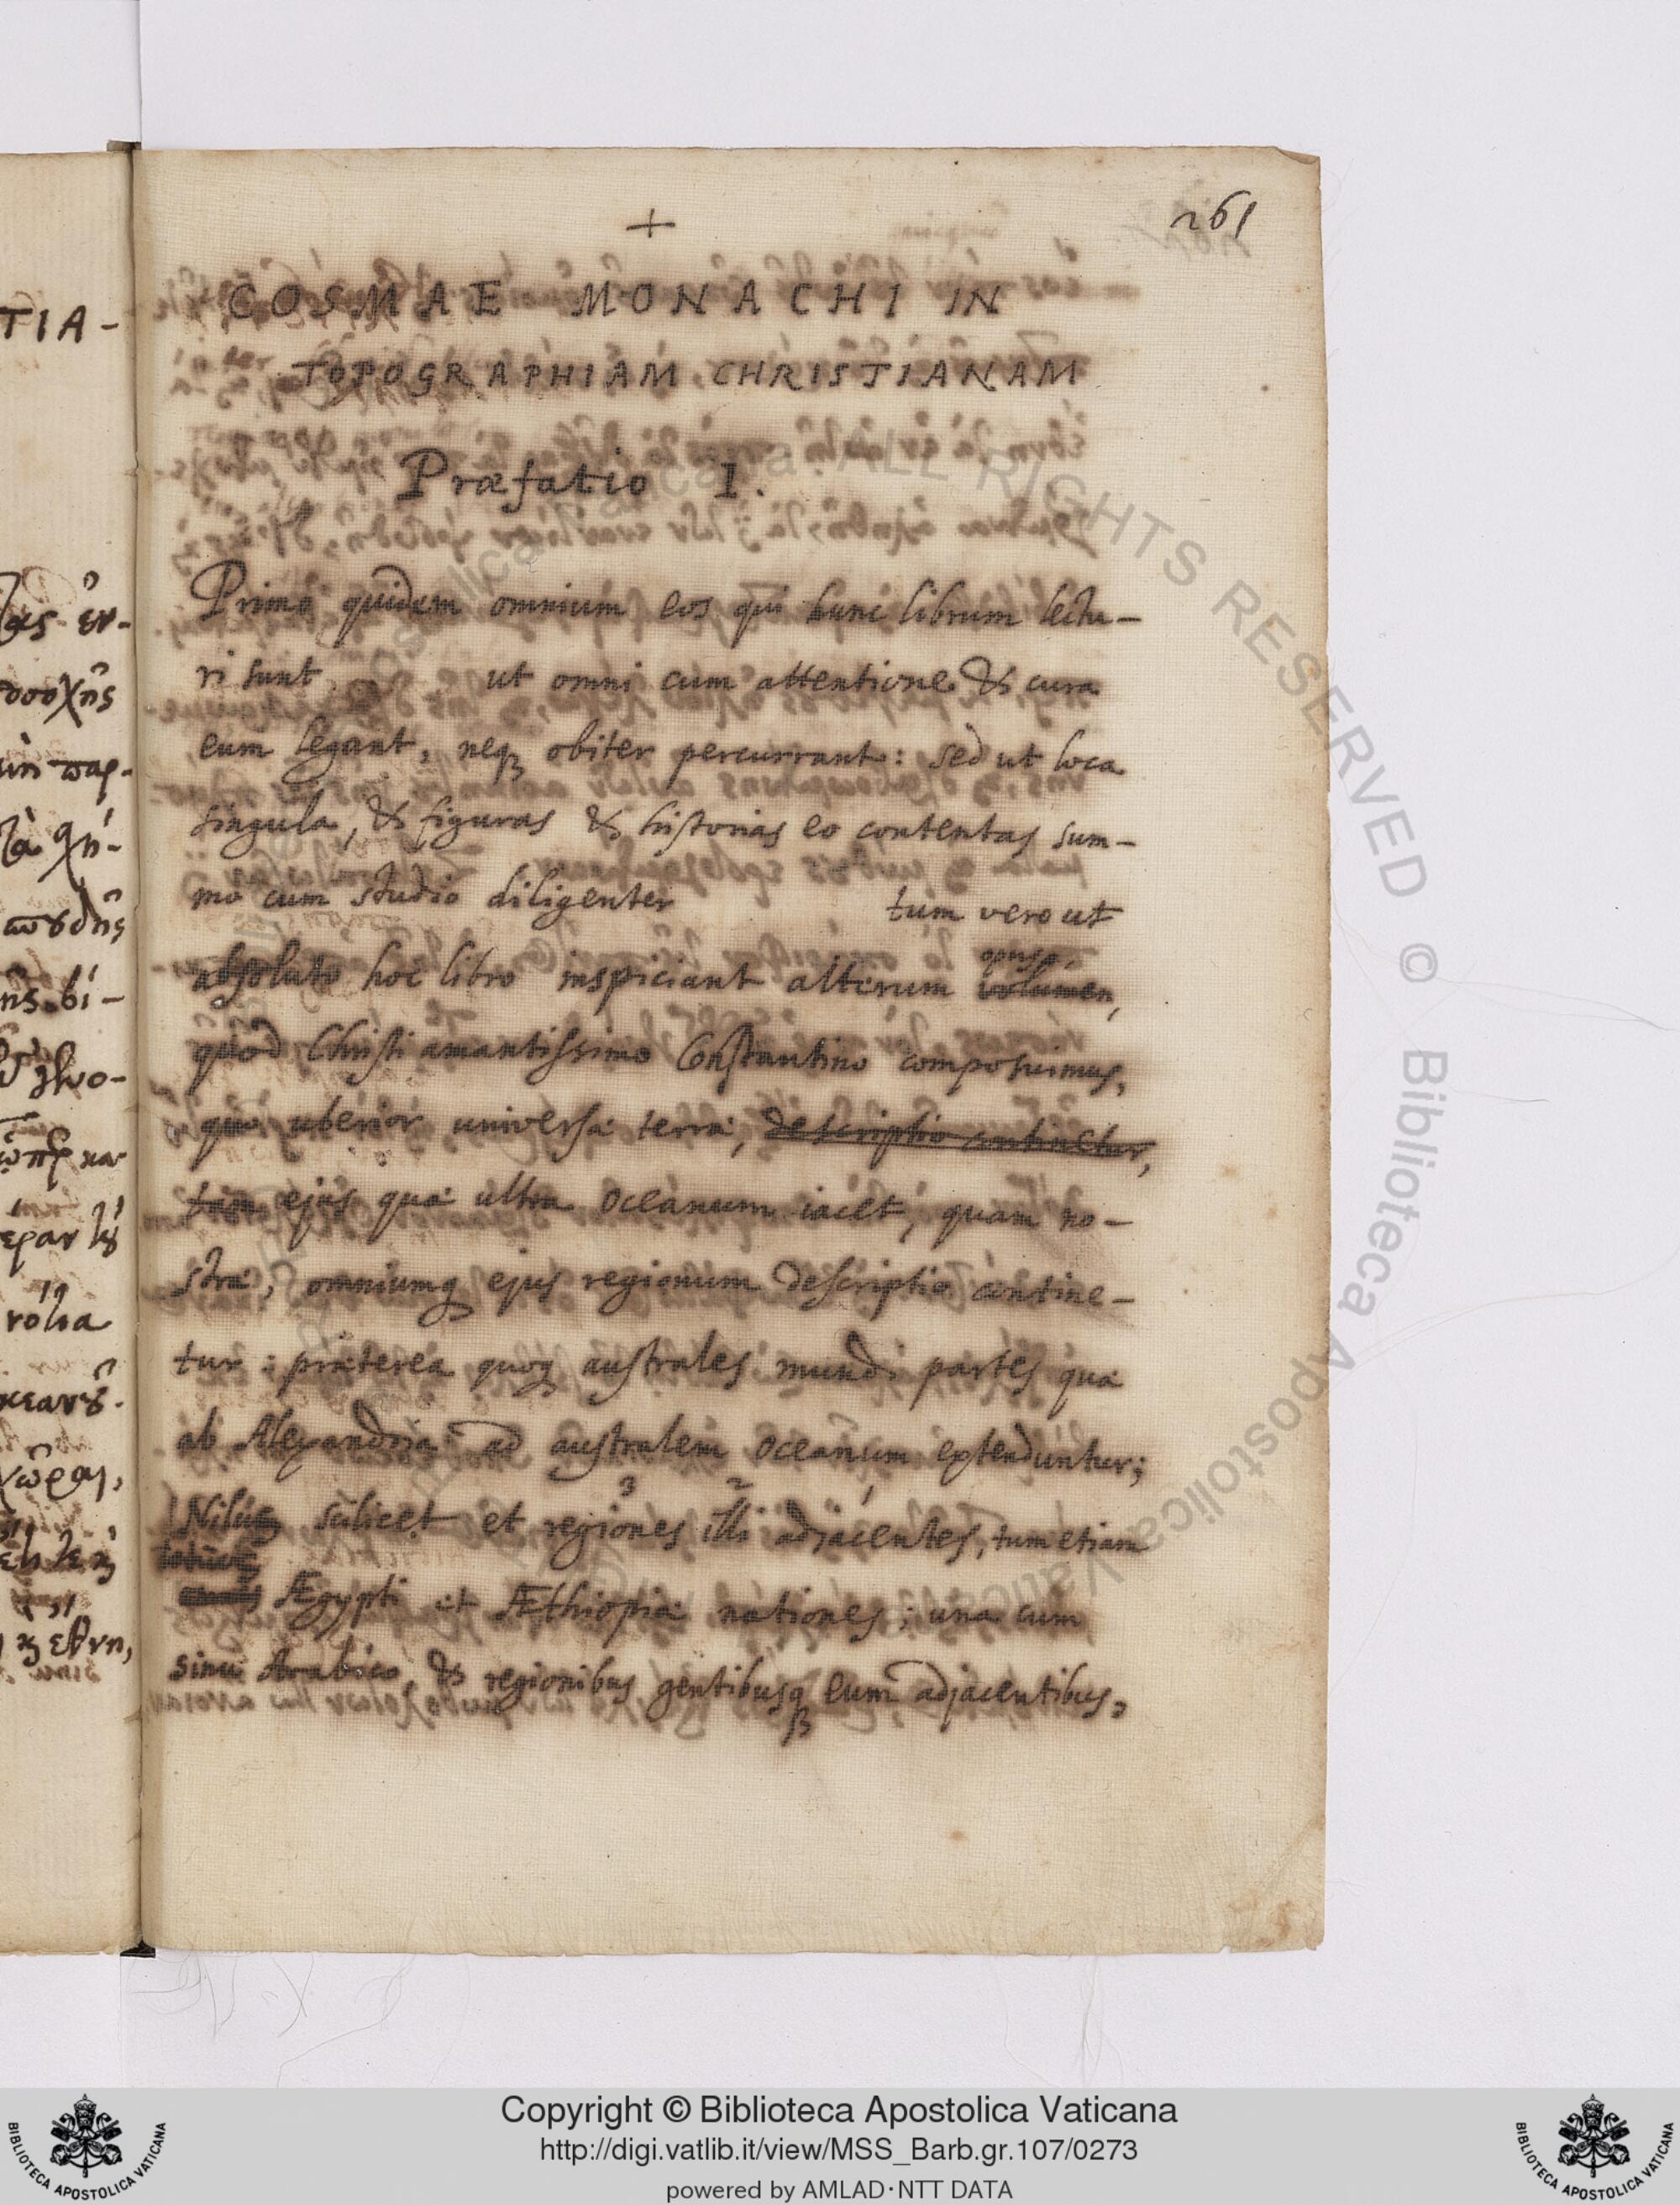 261
+
COSMAE MONACHI IN
TOPOGRAPHIAM CHRISTIANAM
Præfatio I.
Primo quidem omnium eos qui hunc librum lectu-
ri sunt ut omni cum attentione & cura
eum legant, neq₃ obiter percurrant: sed ut loca
singula, & figuras & historias eo contentas sum-
mo cum studio diligenter tum vero ut
absoluto hoc libro inspiciant alterum volumen,
quod Christi amantissimo Constantino composuimus,
quo uberior universæ terræ, descriptio continetur,
tam ejus quæ ultra Oceanum iacet, quam no-
stræ, omniumq ejus regionum descriptio contine-
tur: præterea quoq australes mundi partes quæ
ab Alexandria ad australem Oceanum extenduntur;
3 2
Nilus scilicet et regiones illi adjacentes, tum etiam
totius
Ægypti et Æthiopiæ nationes; una cum
sinu Arabico, & regionibus gentibusq₃ eum adjacentibus,
TIA-
ὠπὲρ κα
κεανȣ̃.
χώραι,
ALL RIGHTS RESERVED © Biblioteca Apostolica Vaticana
Copyright © Biblioteca Apostolica Vaticana
http://digi.vatlib.it/view/MSS_Barb.gr.107/0273
powered by AMLAD·NTT DATA
BIBLIOTECA APOSTOLICA VATICANA
BIBLIOTECA APOSTOLICA VATICANA